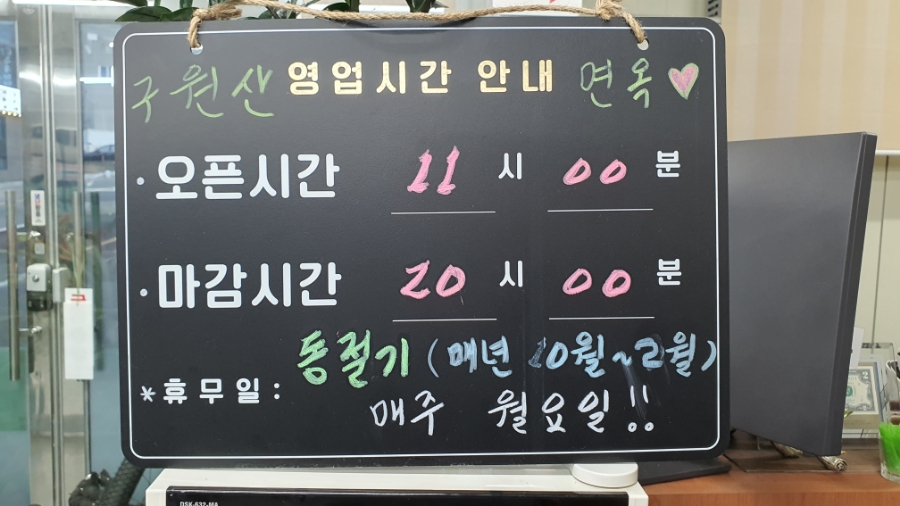 구원산 영업시간 안내 면옥
· 오픈시간 11 시 00 분
· 마감시간 20 시 00 분
동절기 (매년 10월~2월)
* 휴무일 : 매주 월요일 !!
DSK-632-MA